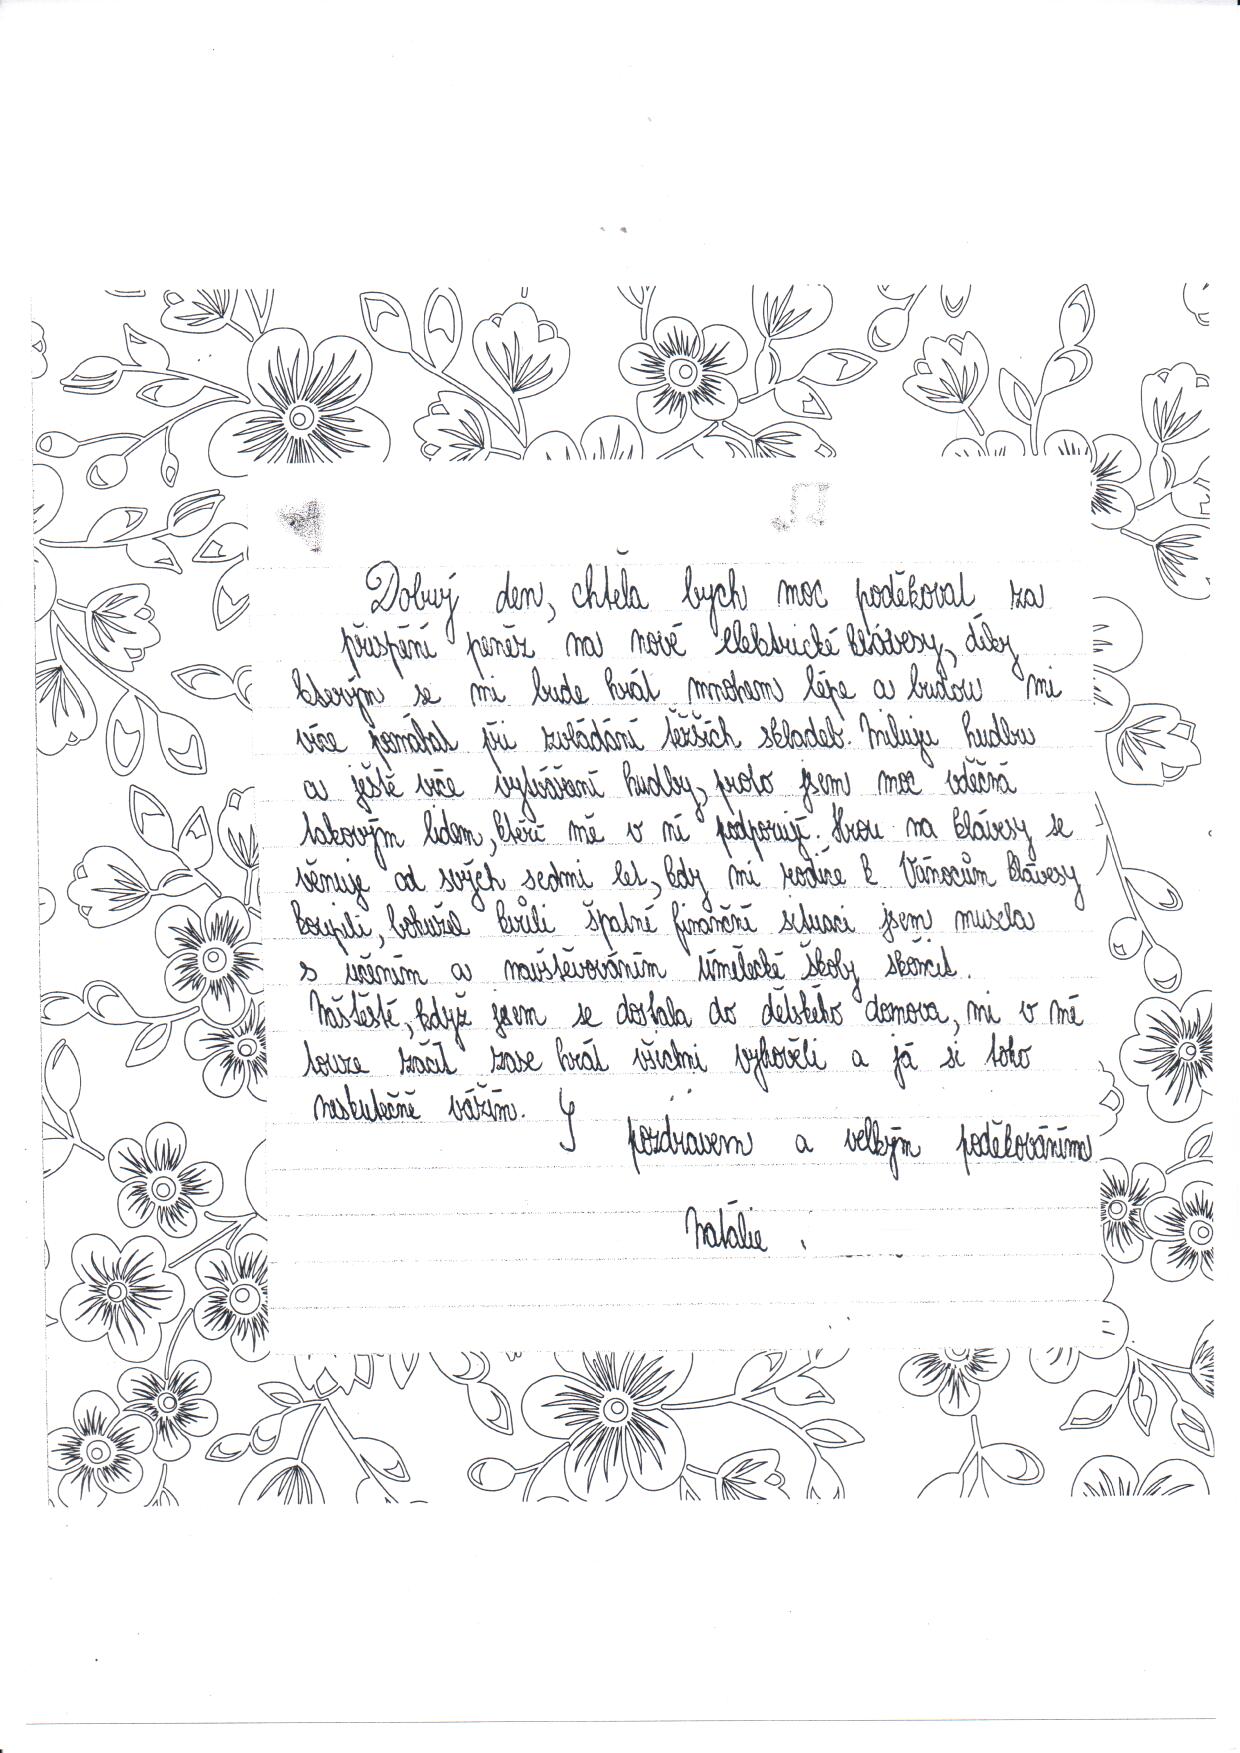 Dobrý den, chtěla bych moc poděkovat za
přispění peněz na nové elektrické klávesy, díky
kterým se mi bude hrát mnohem lépe a budou mi
více pomáhat při zvládání těžších skladeb. Miluju hudbu
a ještě více vytváření hudby, proto jsem moc vděčná
takovým lidem, kteří mě v ní podporují. Hrou na klávesy se
věnuje od svých sedmi let, kdy mi rodiče k Vánocům klávesy
koupili, bohužel kvůli špatné finanční situaci jsem musela
s učením a navštěvováním Umělecké školy skončit.
Naštěstě, když jsem se dostala do dětského domova, mi v mé
touze začít zase hrát všichni vyhověli a já si toho
neskutečně vážím. S
pozdravem a velkým poděkováním
Natálie